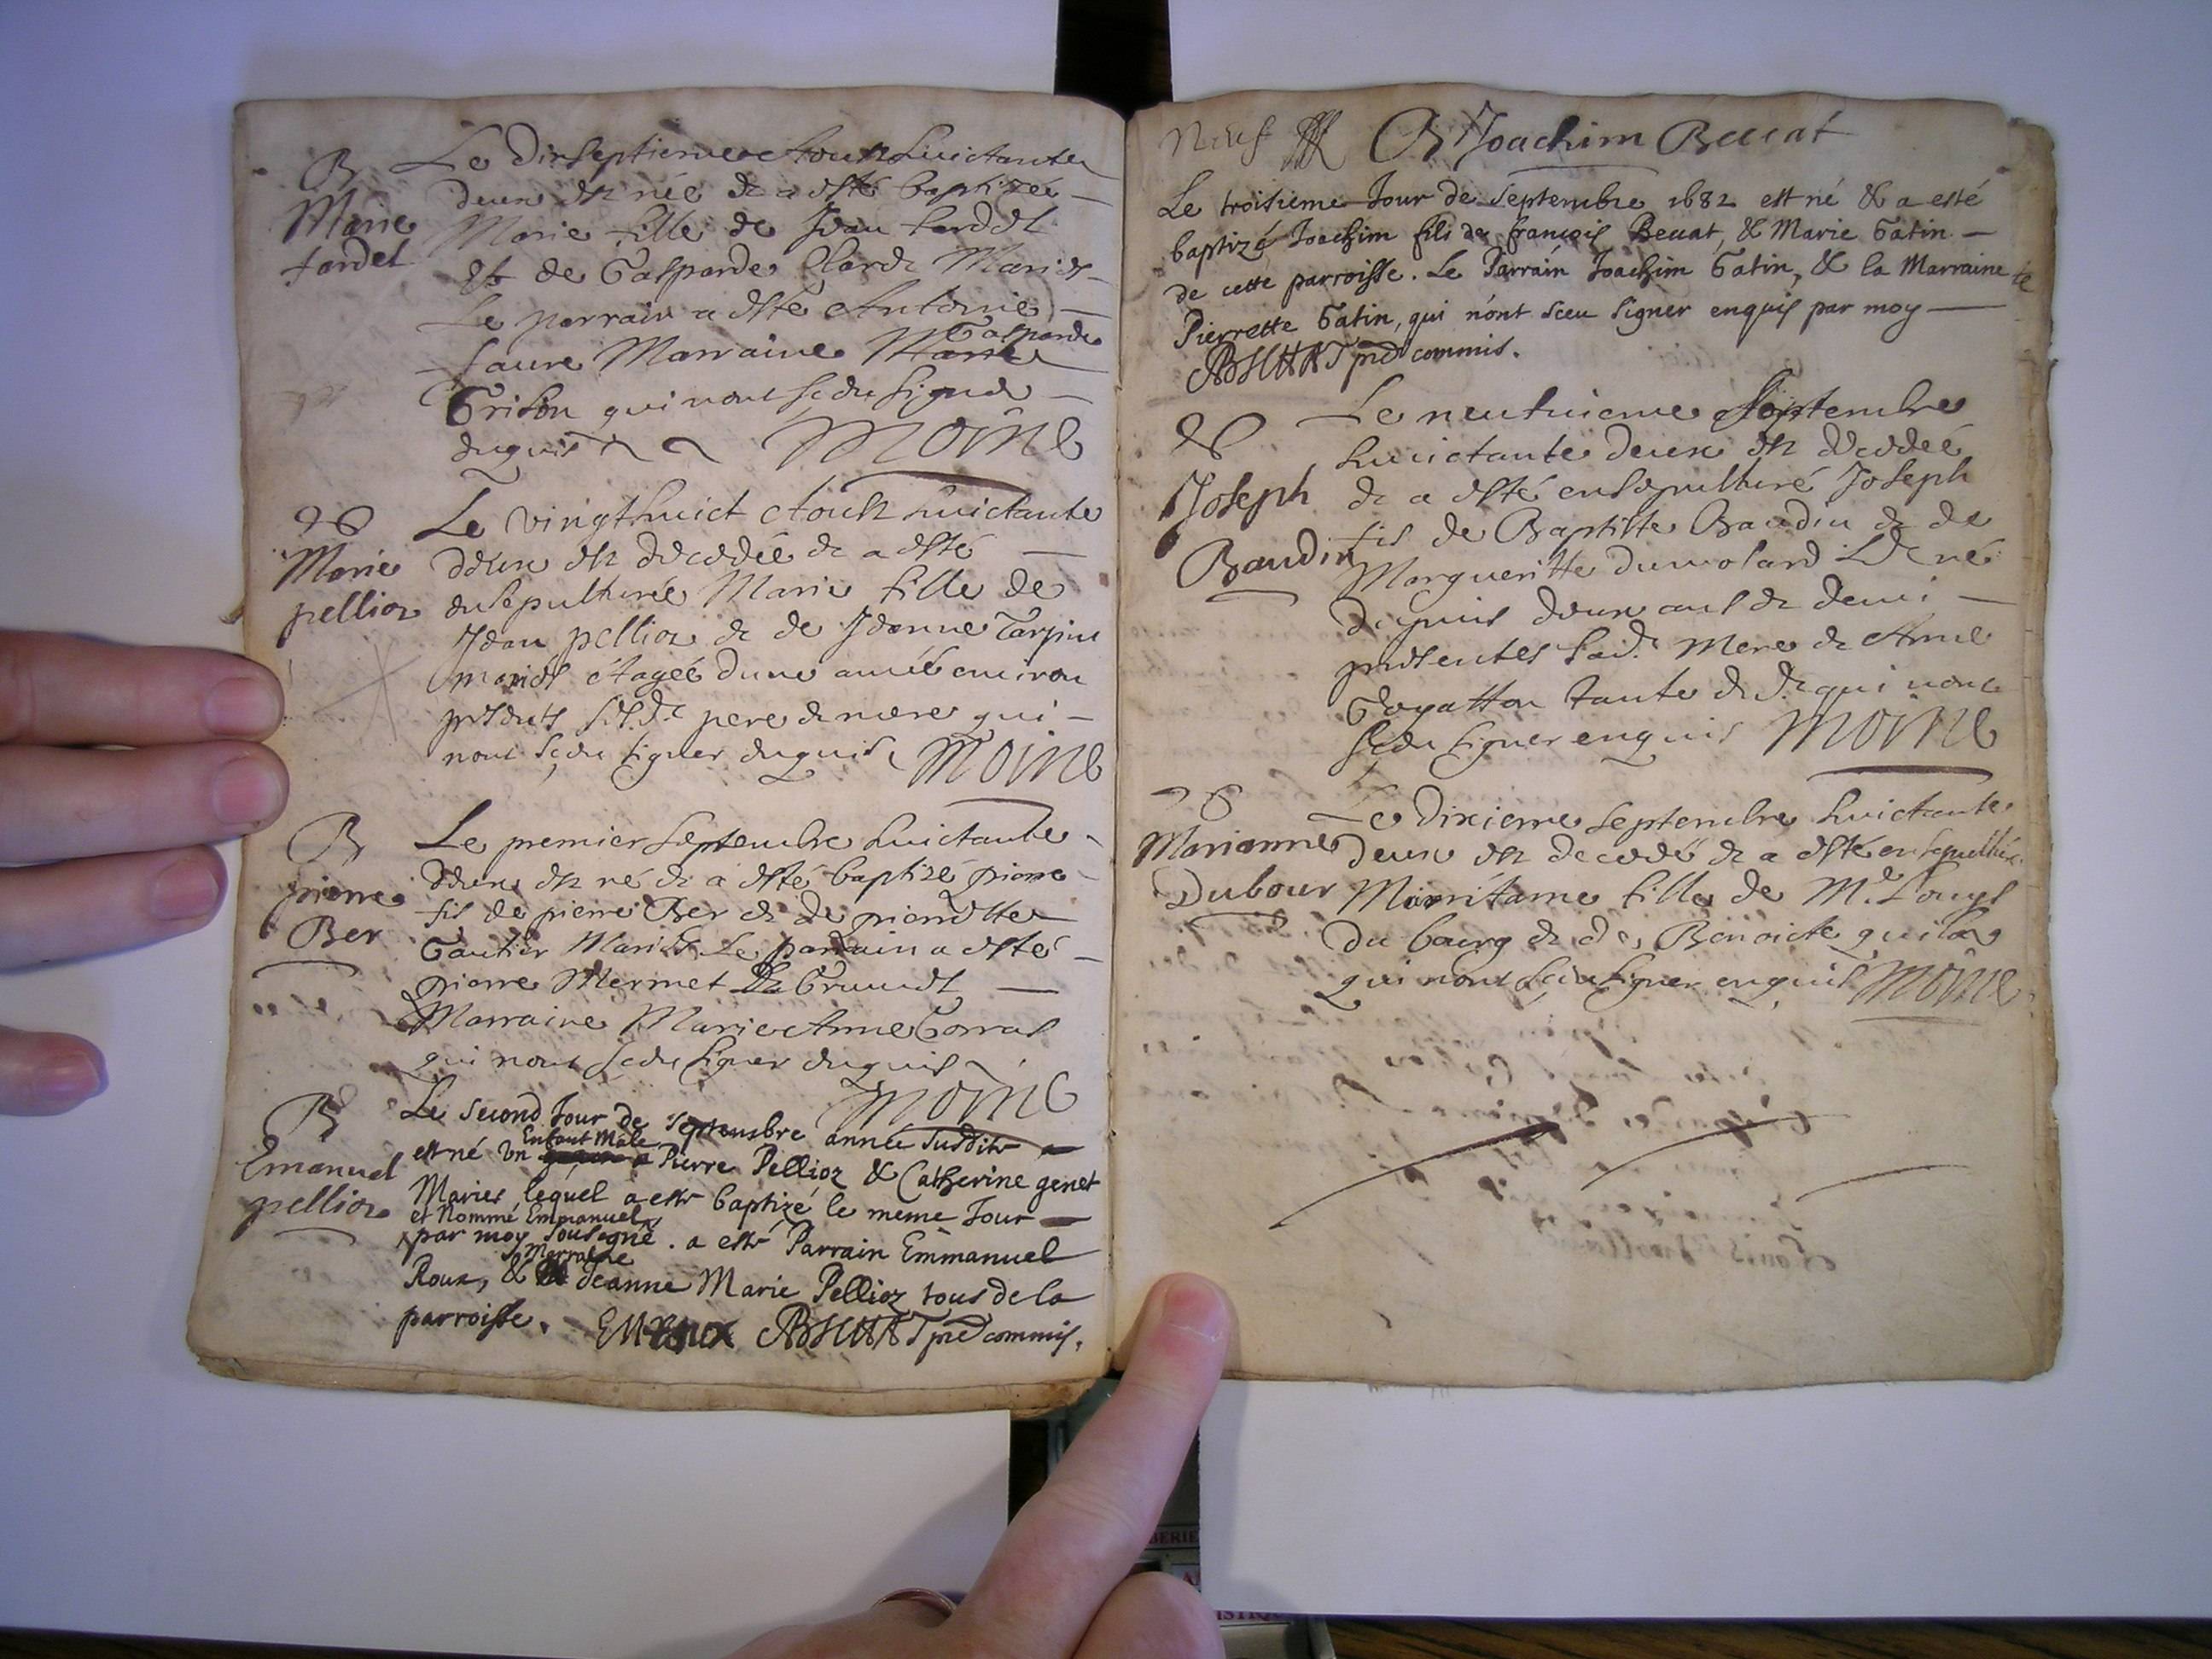 B
Marie
tardet
Le dixseptieme Aoust huictante
deux est née & a esté baptizée
Marie fille de Jean tardet
et de Gasparde Clerc Mariés
Le parrain a esté Antoine
faure Marraine Marie Gasparde
Grison qui nont sceu signer
enquis Moine
Marie
pellioz
Le vingthuict Aoust huictante
deux est decedée & a esté
ensepulturée Marie fille de
Jean pellioz & de Jeanne Tarpin
mariés Aagée dune année environ
presents pere & mere qui
nont sceu signer enquis Moine
B
pierre
Ber
Le premier Septembre huictante
deux est né & a esté baptizé pierre
fils de pierre Ber & de pierrette
Gautier Mariés Le parrain a esté
pierre Mermet
Marraine Marie Anne Gorras
qui nont sceu signer enquis
Moine
B
Emanuel
pellioz
Le second Jour de Septembre année Suditte
est né vn Enfant Male a Pierre Pellioz & Catherine genet
Maries, lequel a esté baptizé le meme Jour
et Nommé Emmanuel
par moy Sousigné. a esté Parrain Emmanuel
Roux, & Merraine Jeanne Marie Pellioz tous de la
parroisse. EMRoux BEUUAT pre commis.
Neuf B Joachim Beuat
Le troisieme Jour de Septembre 1682 est né & a esté
baptizé Joachim fils de françois Beuat, & Marie Gatin
de cette parroisse. Le Parrain Joachim Gatin, & la Marraine
Pierrette Gatin, qui n'ont sceu signer enquis par moy
BEUUAT pre commis.
Joseph
Baudin
Le neufuieme Septembre
huictante deux est decedée
& a esté ensepulturé Joseph
fils de Baptiste Baudin & de
Margueritte Dumolard né
depuis deux ans & demi
presentes lad. Mere & Anne
tante qui nont
sceu signer enquis Moine
Marianne
Dubour
Le dixieme Septembre huictante
deux est decedé & a esté ensepulturée
fille de M. Louys
du bourg & de Benoicte
qui nont sceu signer enquis Moine